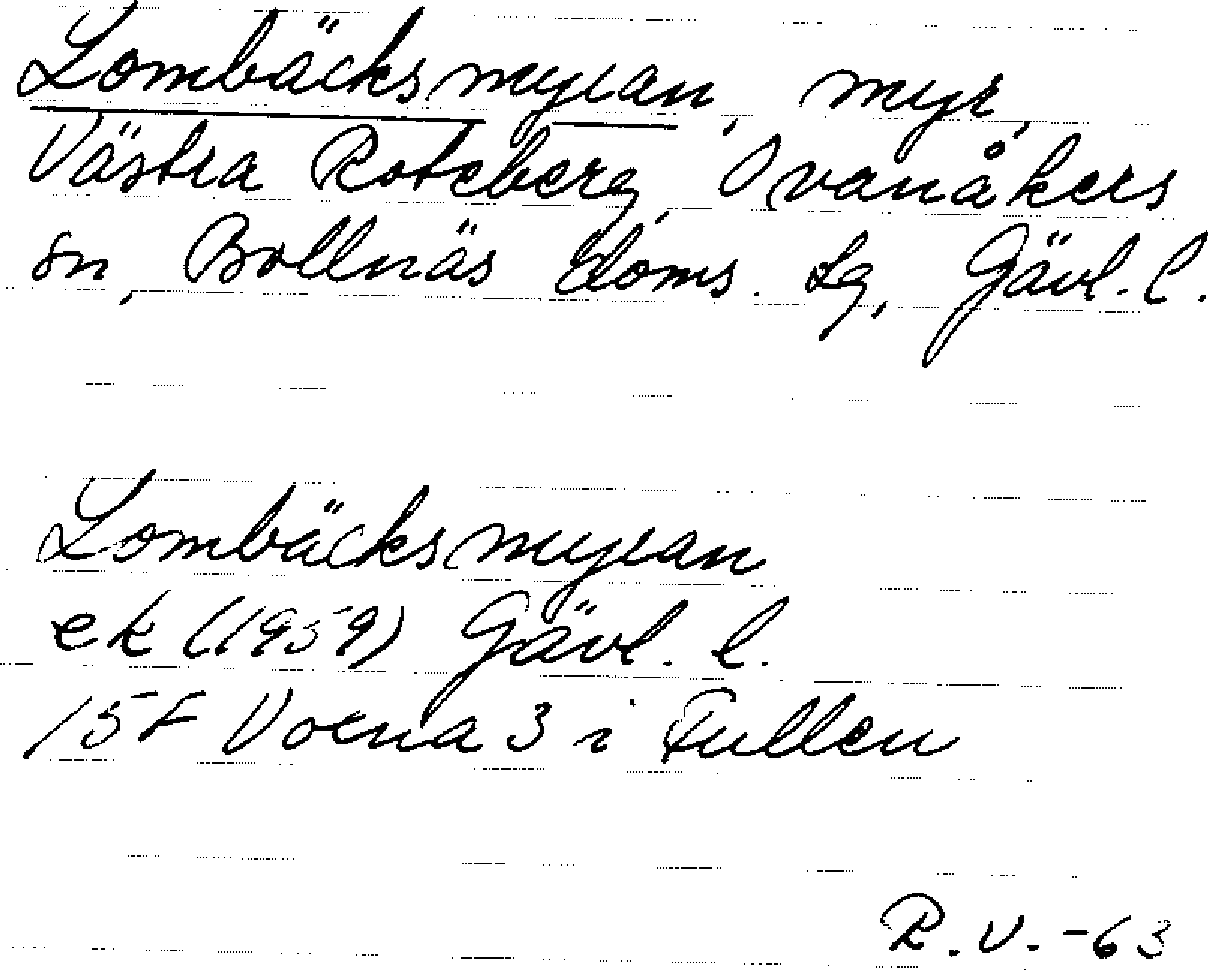 Lombäcksmyran, myr,
Västra Roteberg, Ovanåkers
sn, Bollnäs doms. lg, Gävl. l.
Lombäcksmyran
ek (1959) Gävl. l.
15F Voxna 3 i Fullen
R.V. -63